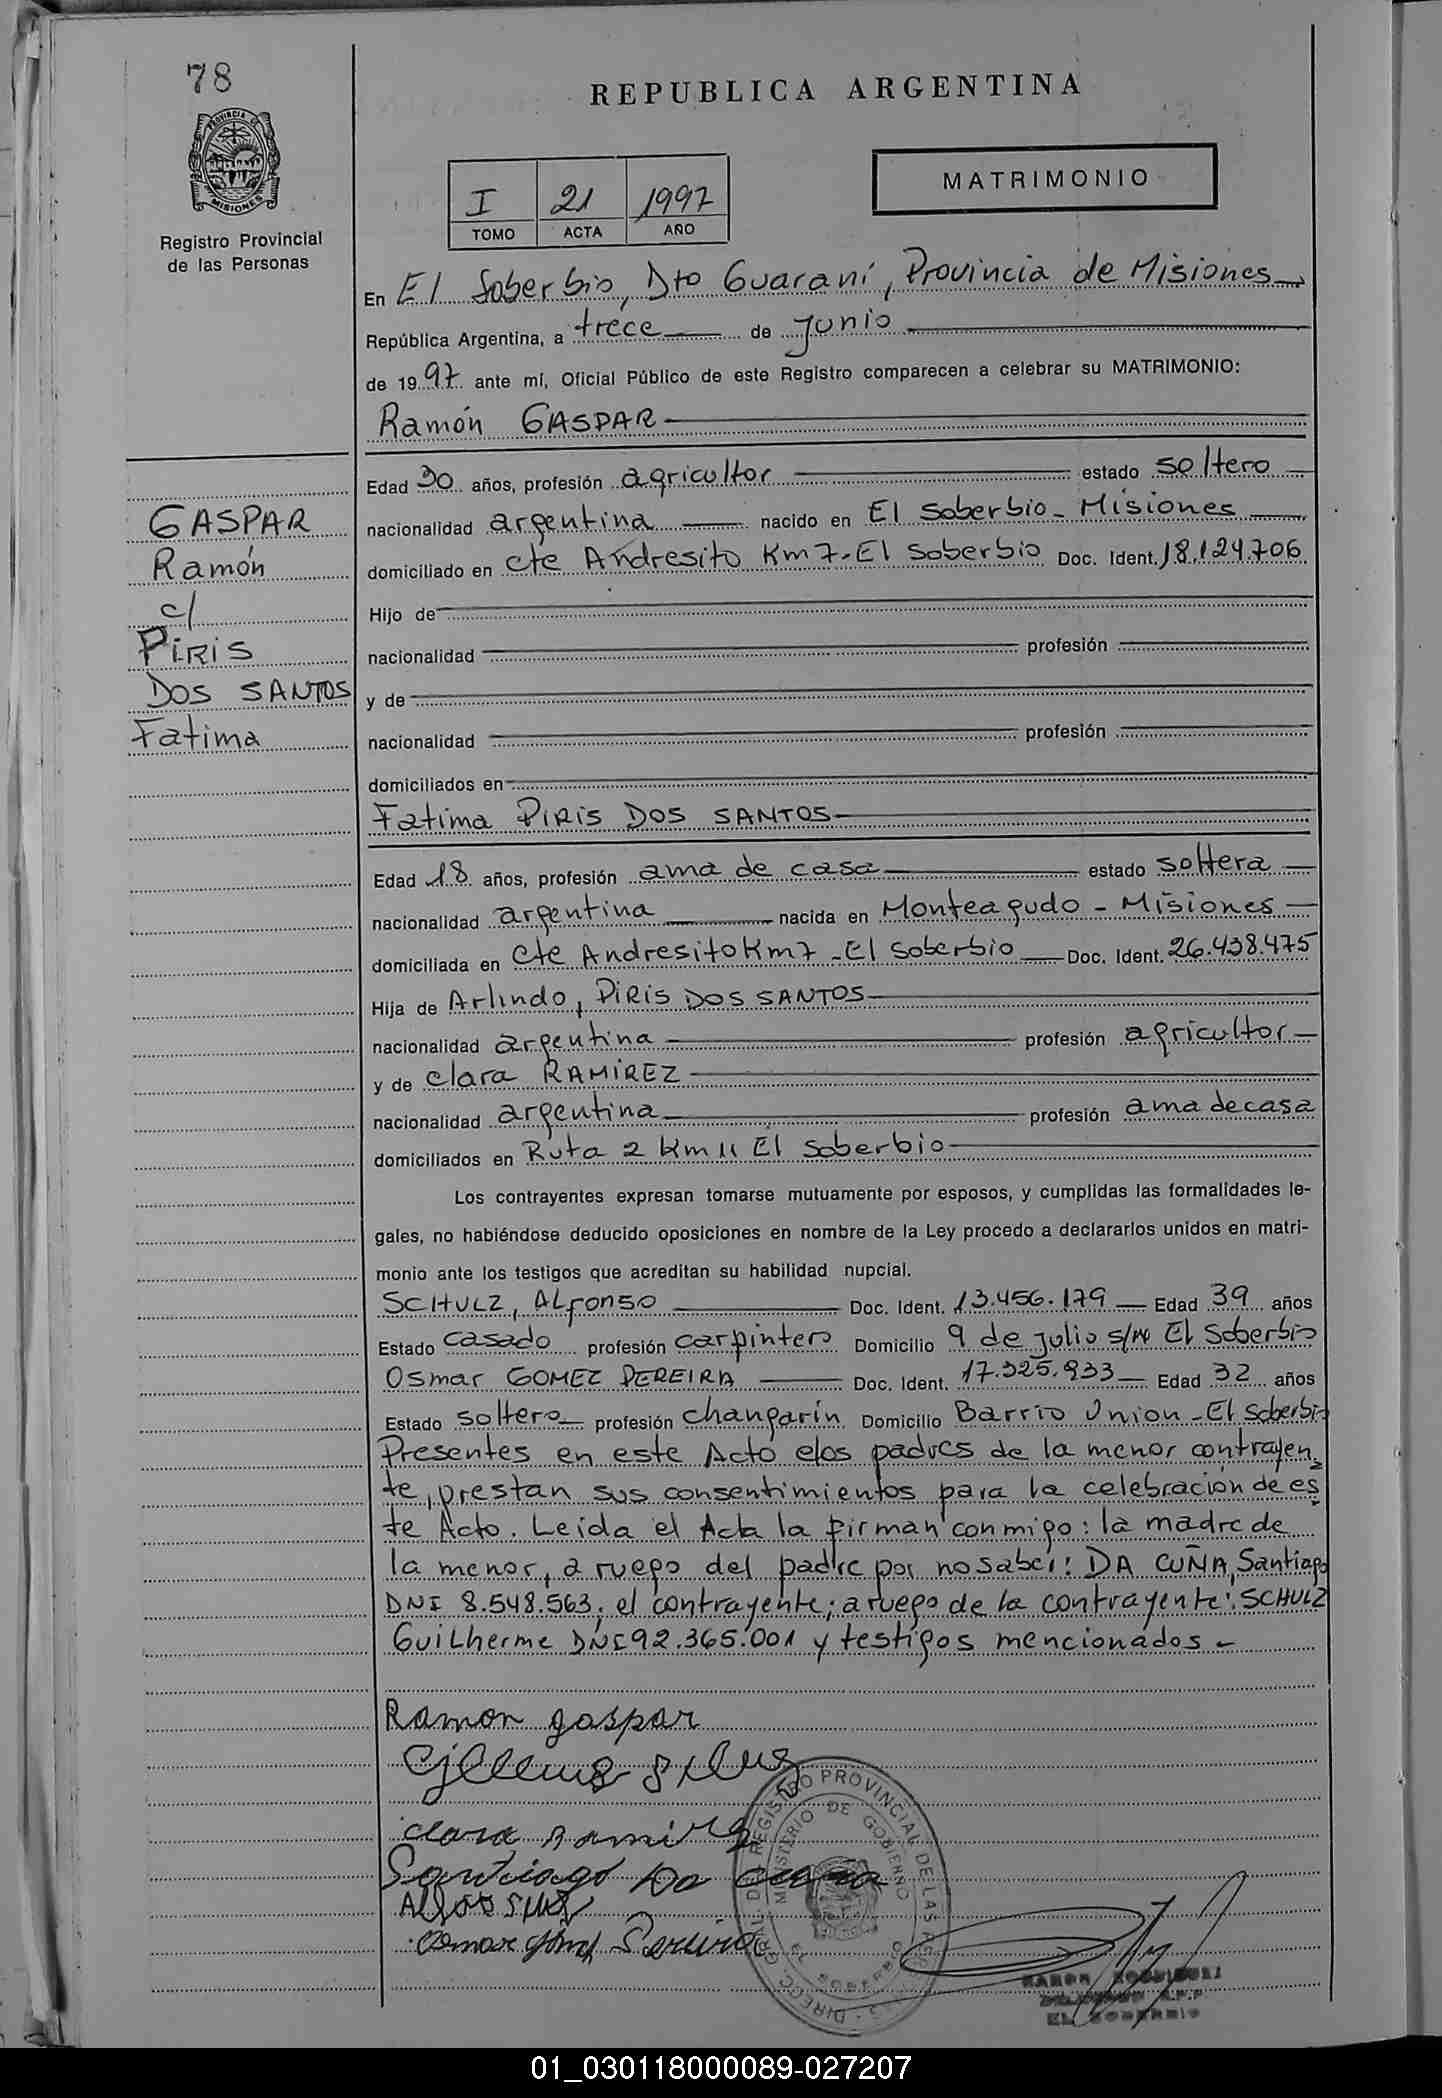 78
REPUBLICA ARGENTINA
PROVINCIA DE MISIONES
Registro Provincial
de las Personas
MATRIMONIO
I 21 1997
TOMO ACTA AÑO
En El Soberbio, Dto Guaraní, Provincia de Misiones
República Argentina, a trece de junio
de 1997 ante mí, Oficial Público de este Registro comparecen a celebrar su MATRIMONIO:
Ramón GASPAR
Edad 30 años, profesión agricultor estado soltero
nacionalidad argentina nacido en El Soberbio - Misiones
domiciliado en cte Andresito Km 7 - El Soberbio Doc. Ident. 18.124.706
Hijo de
nacionalidad profesión
y de
nacionalidad profesión
domiciliados en
GASPAR
Ramón
c/
PIRIS
DOS SANTOS
Fatima
Fatima PIRIS DOS SANTOS
Edad 18 años, profesión ama de casa estado soltera
nacionalidad argentina nacida en Monteagudo - Misiones
domiciliada en cte Andresito Km 7 - El Soberbio Doc. Ident. 26.438.475
Hija de Arlindo, PIRIS DOS SANTOS
nacionalidad argentina profesión agricultor
y de clara RAMIREZ
nacionalidad argentina profesión ama de casa
domiciliados en Ruta 2 Km 11 El Soberbio
Los contrayentes expresan tomarse mutuamente por esposos, y cumplidas las formalidades le-
gales, no habiéndose deducido oposiciones en nombre de la Ley procedo a declararlos unidos en matri-
monio ante los testigos que acreditan su habilidad nupcial.
SCHULZ, ALfonso Doc. Ident. 13.456.179 Edad 39 años
Estado casado profesión carpintero Domicilio 9 de julio s/nº El Soberbio
Osmar GOMEZ PEREIRA Doc. Ident. 17.325.933 Edad 32 años
Estado soltero profesión changarín Domicilio Barrio Union - El Soberbio
Presentes en este Acto los padres de la menor contrayen
te, prestan sus consentimientos para la celebración de es
te Acto. Leída el Acta la firman conmigo: la madre de
la menor, a ruego del padre por no saber: DA CUÑA, Santiago
DNI 8.548.563; el contrayente; a ruego de la contrayente: SCHULZ
GuiLherme DNI 92.365.001 y testigos mencionados -
Ramon gaspar
clara Ramirez
Santiago Da cunha
DIRECC. GRAL. DEL REGISTRO PROVINCIAL DE LAS PERSONAS
MINISTERIO DE GOBIERNO
EL SOBERBIO
EL SOBERBIO
01_030118000089-027207